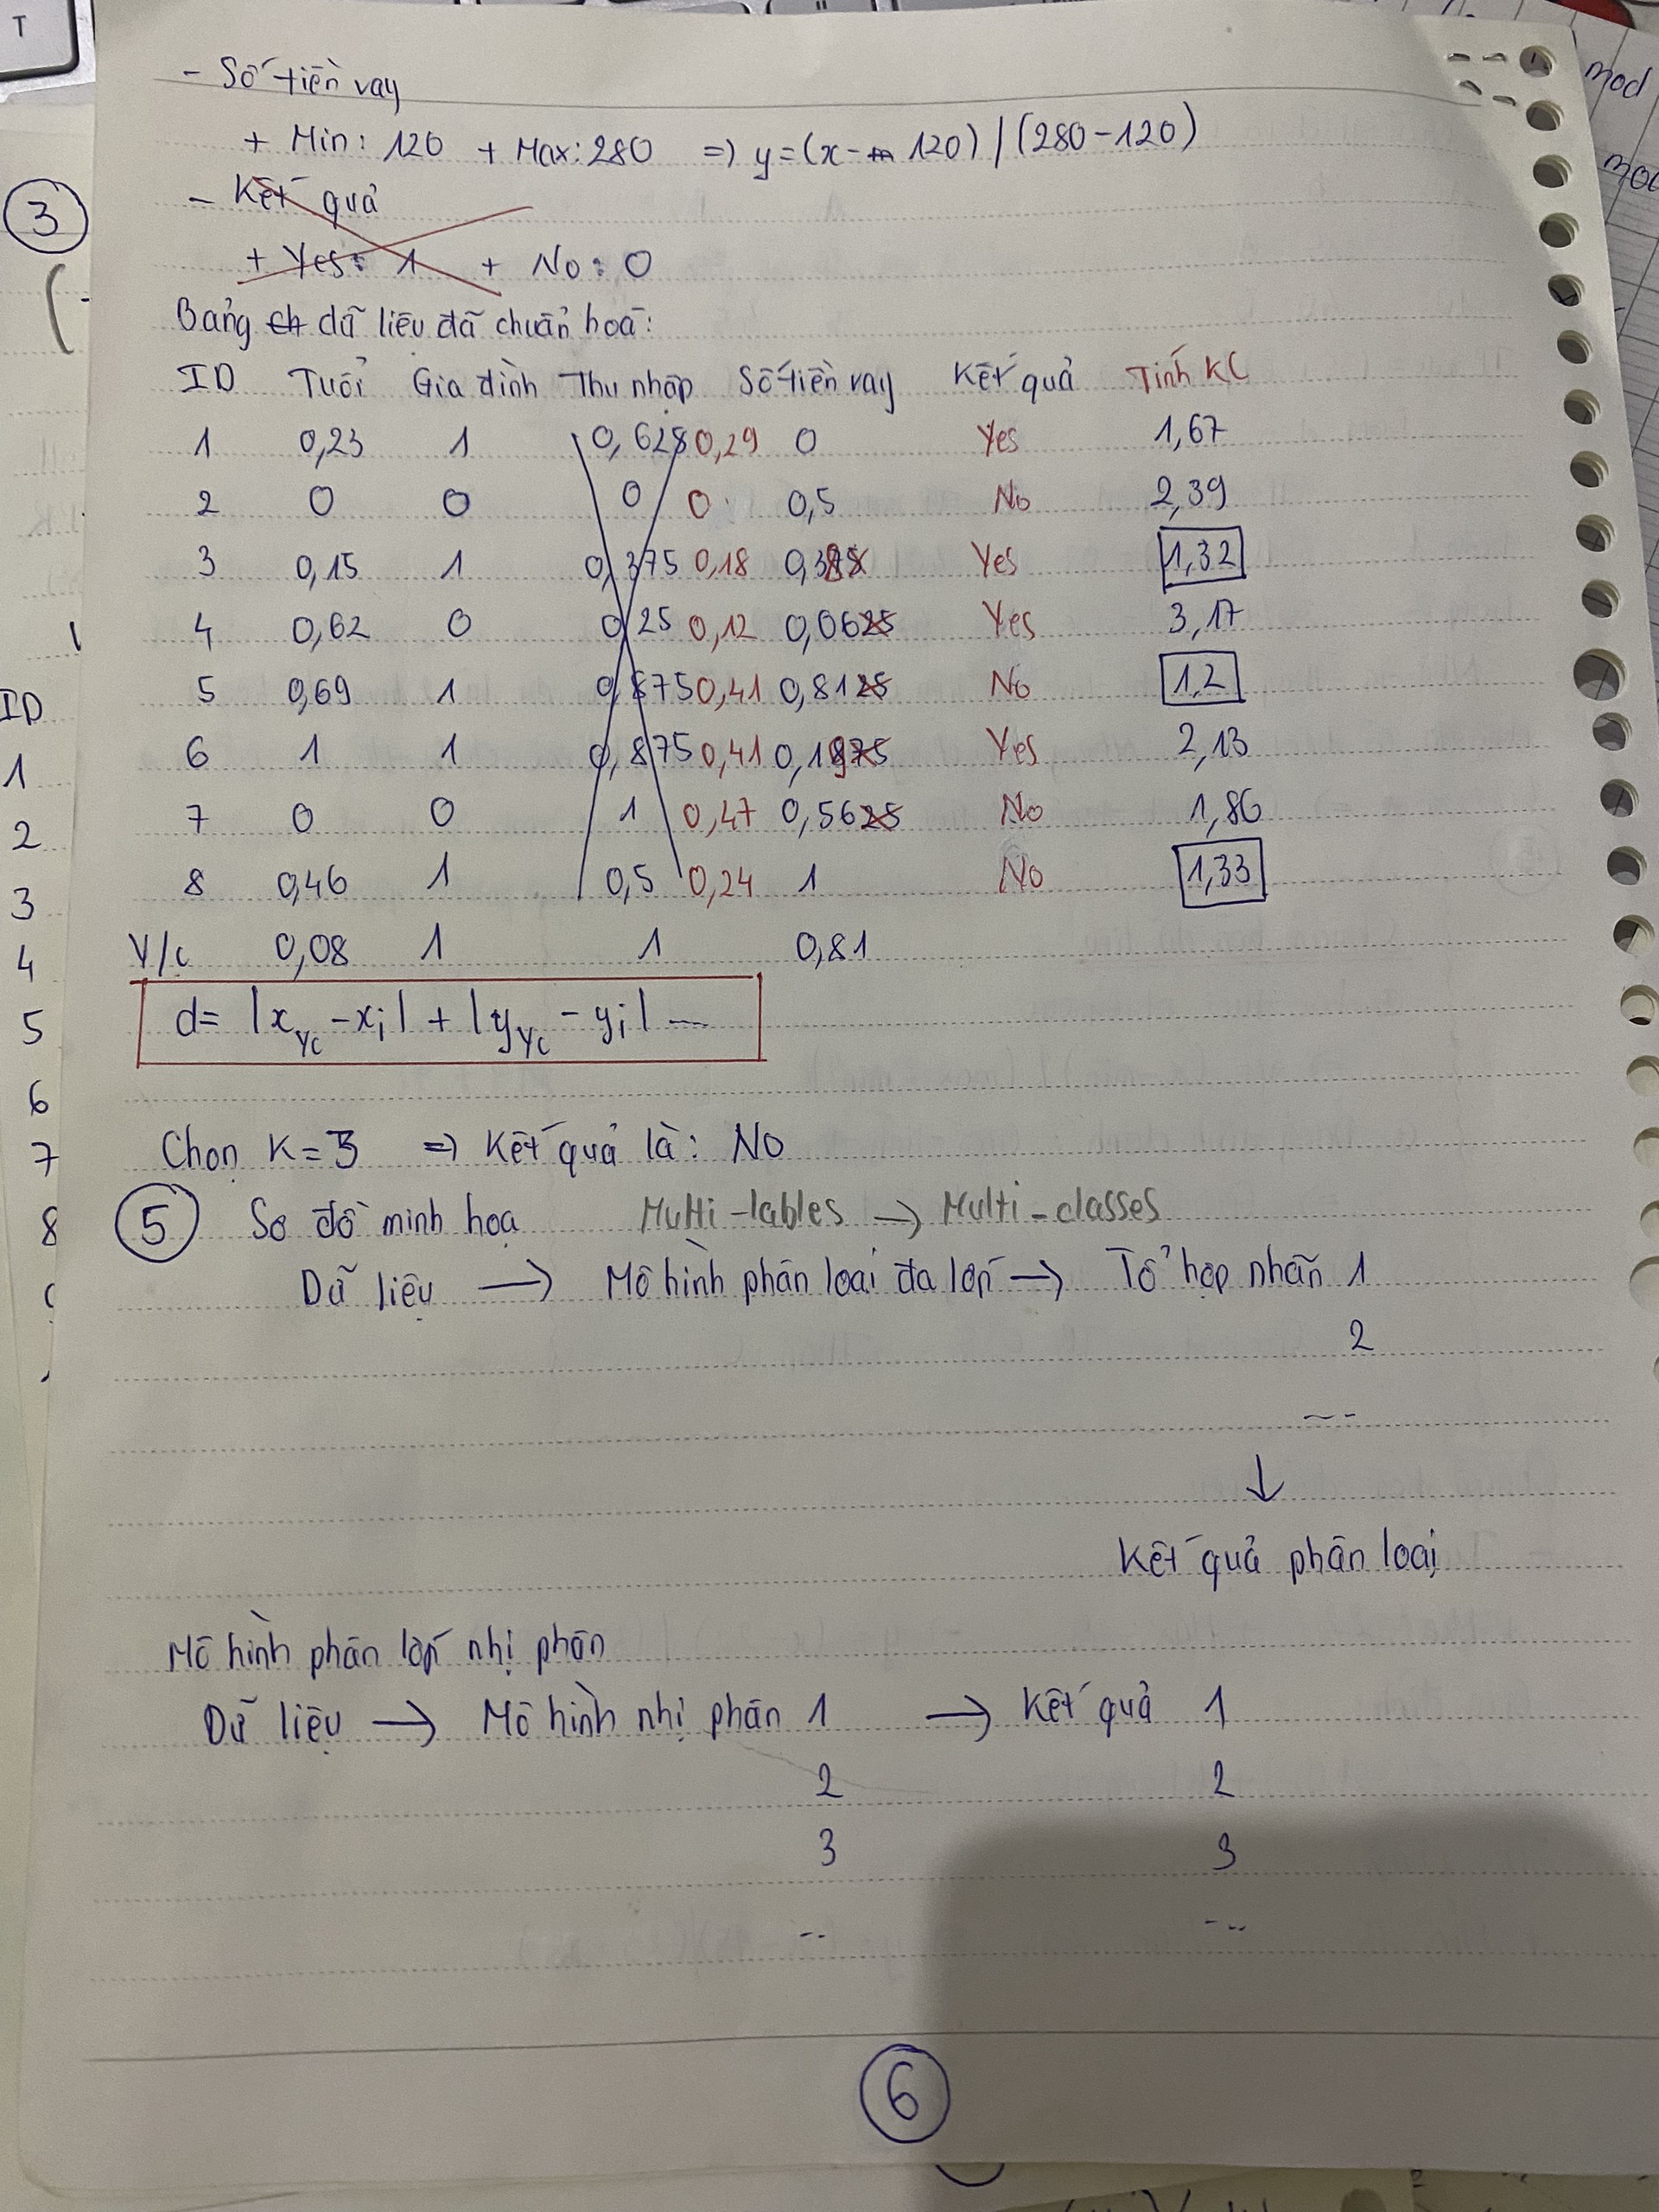 - Số tiền vay
+ Min: 120 + Max: 280 => y = (x - 120) / (280 - 120)
- Kết quả
+ Yes: 1 + No: 0
Bảng dữ liệu đã chuẩn hoá:
ID Tuổi Gia đình Thu nhập Số tiền vay Kết quả Tính KC
1 0,23 1 0,628 0,29 0 Yes 1,67
2 0 0 0 0 0,5 No 2,39
3 0,15 1 0,375 0,18 Yes 1,32
4 0,62 0 0,25 0,12 0,0625 Yes 3,17
5 0,69 1 0,875 0,41 0,8125 No 1,2
6 1 1 0,875 0,41 Yes 2,13
7 0 0 1 0,47 0,5625 No 1,86
8 0,46 1 0,5 0,24 1 No 1,33
Y/c 0,08 1 1 0,81
d = |x_Yc - x_i| + |y_Yc - y_i| ...
Chọn K = 3 => Kết quả là: No
5 Sơ đồ minh hoạ Multi-lables → Multi-classes
Dữ liệu → Mô hình phân loại đa lớp → Tổ hợp nhãn 1
2
...
↓
Kết quả phân loại
Mô hình phân lớp nhị phân
Dữ liệu → Mô hình nhị phân 1 → Kết quả 1
2 2
3 3
... ...
6
3
ID
1
2
3
4
5
6
7
8
mod
T